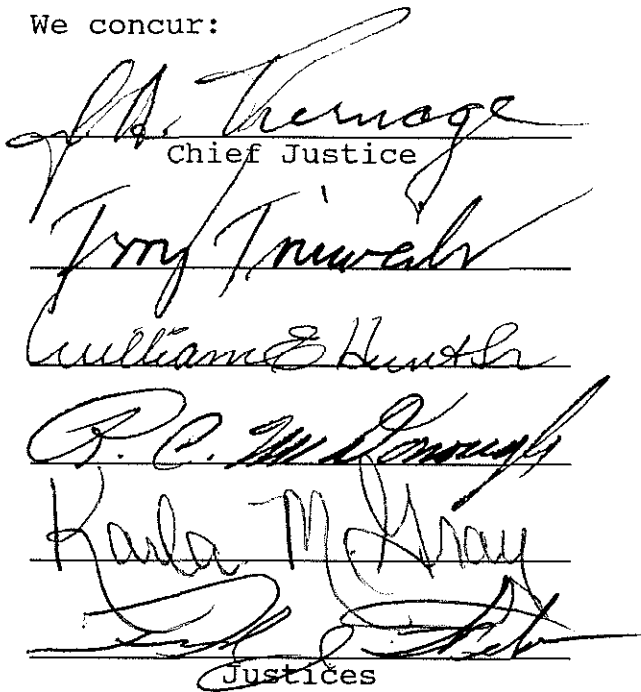 We concur:
J. A. Turnage
Chief Justice
Terry Trieweiler
William E Hunt Sr
R. C. McDonough
Karla M. Gray
Justices